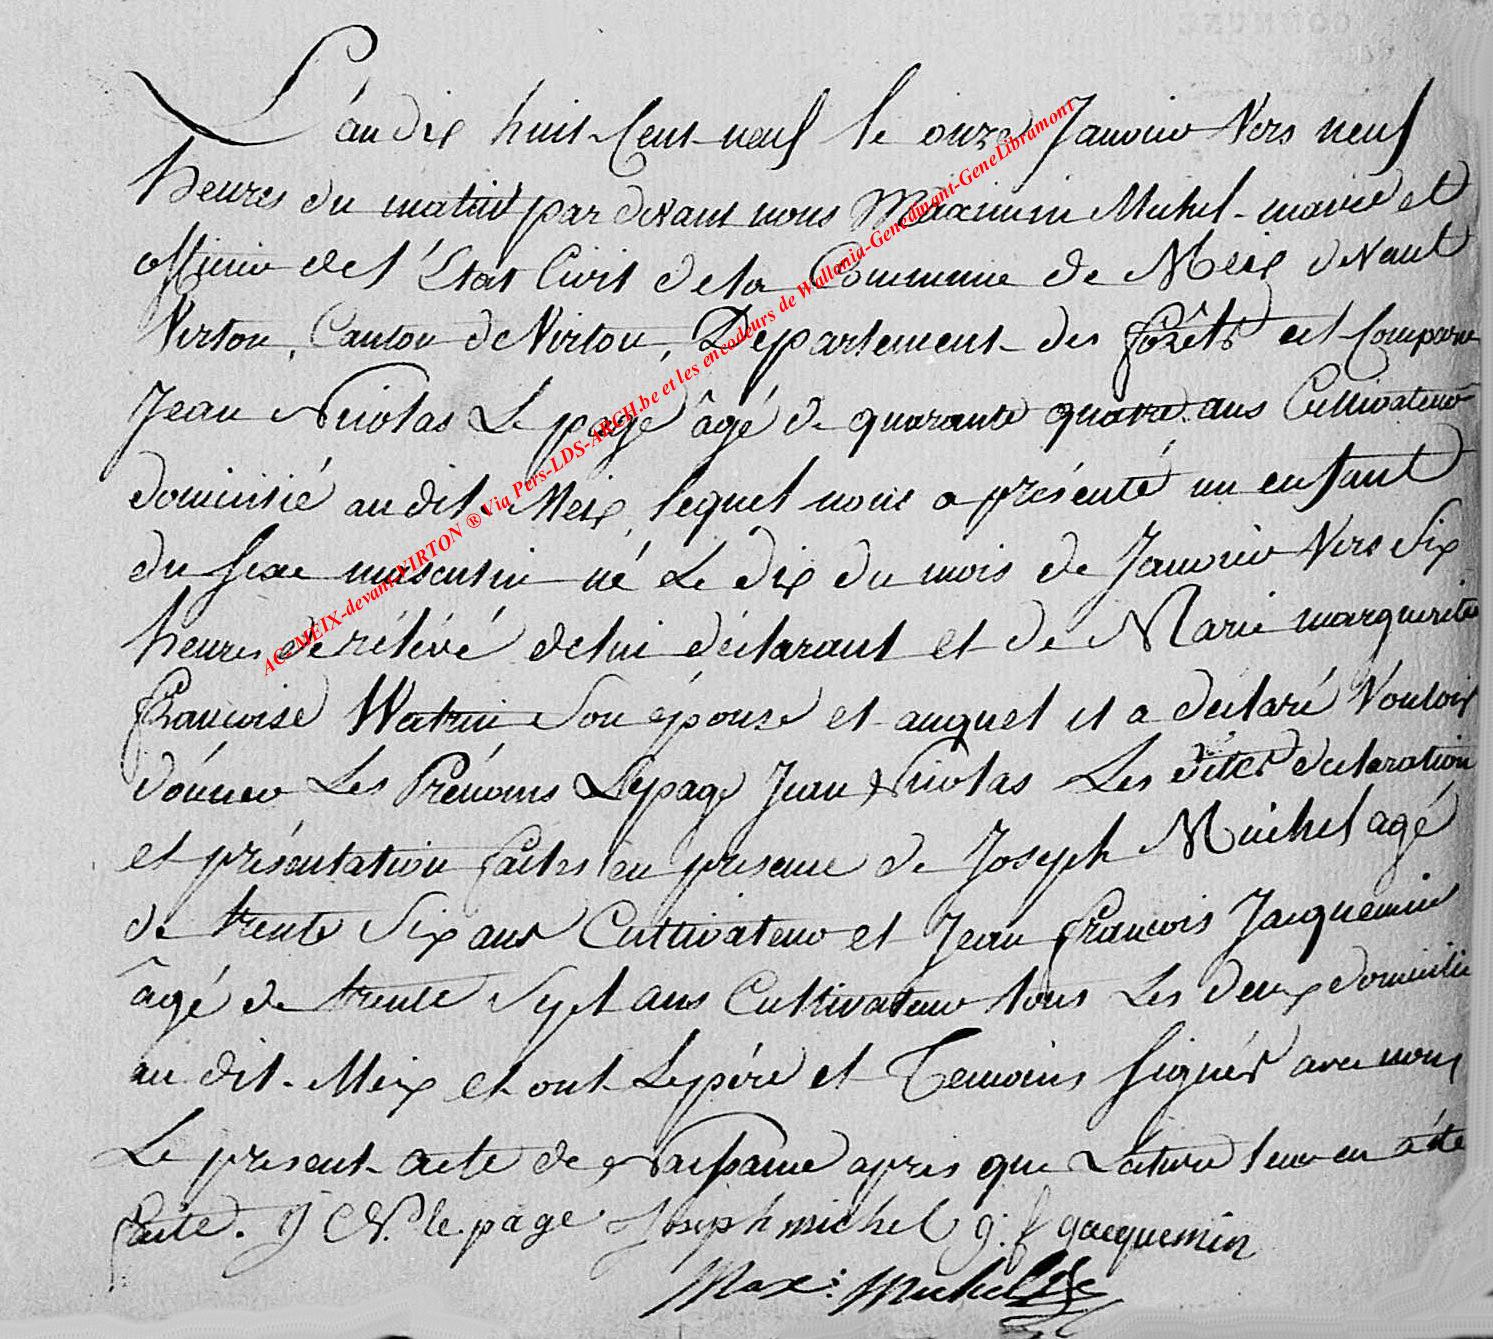 L'an dix huit Cent neuf le onze Janvier Vers neuf
heures du matin par devant nous Maximin Michel maire et
officier de l'Etat Civil de la Commune de Meix devant
Virton, Canton de Virton, Département des forêts est Comparu
Jean Nicolas Lepage âgé de quarante quatre ans Cultivateur
domicilié audit Meix, lequel nous a présenté un enfant
du sexe masculin né Le dix du mois de Janvier Vers Six
heures de rélévé de lui déclarant et de Marie marguerite
françoise Watrin Son épouse et auquel il a déclaré Vouloir
donner Les Prénoms Lepage Jean Nicolas Les dites declaration
et présentation faites en presence de Joseph Michel agé
de trente Six ans Cultivateur et Jean françois Jacquemin
âgé de trente Sept ans Cultivateur tous Les deux domicilié
au dit Meix et ont Le père et Temoins signés avec nous
Le present acte de Naissance apres que Lecture leur en a été
faite. J N. le page Joseph michel g: f gacquemin
Max: Michel
AC-MEIX-devant-VIRTON ® Via Pers-LDS-ARCH.be et les encodeurs de Wallonia-Genedinant-GeneLibramont